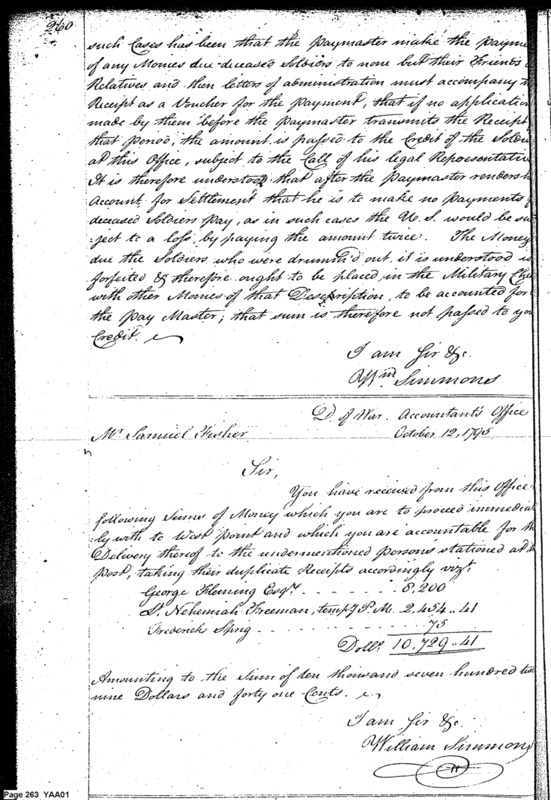 260
such Cases has been that the paymaster make the payme
of any Monies due deceased Soldiers to none but their Friends
Relatives and then letters of administration must accompany th
Receipt as a Voucher for the payment, that if no application
made by them before the paymaster transmits the Receipt
that period, the amount is passed to the Credit of the Soldie
at this Office, subject to the Call of his legal Representative
It is therefore understood that after the Paymaster renders h
Account for Settlement that he is to make no payments
deceased Soldiers pay, as in such cases the U. S. would be su
ject to a loss by paying the amount twice. The Money
due the Soldiers who were drumm'd out, it is understood is
forfeited & therefore ought to be placed in the Military
with other Monies of that Description, to be accounted for
the Pay Master; that sum is therefore not passed to yo
Credit.
I am Sir &c.
Wm Simmons
D. of War. Accountant's Office
Mr. Samuel Fisher October 12, 1795
Sir,
You have received from this Office
following Sums of Money which you are to proceed immedia
ly with to West point and which you are accountable for th
Delivery thereof to the undermentioned persons stationed at th
post, taking their duplicate Receipts accordingly vizt.
George Fleming Esqr. - - - - - 8,200
Lt. Nehemiah Freeman, tempy P. M. 2.454..41
Frederick Spng - - - - - - 75
Dolls. 10,729..41
Amounting to the Sum of ten thousand seven hundred twe
nine Dollars and forty one Cents.
I am Sir &c.
William Simmons
Page 263 YAA01